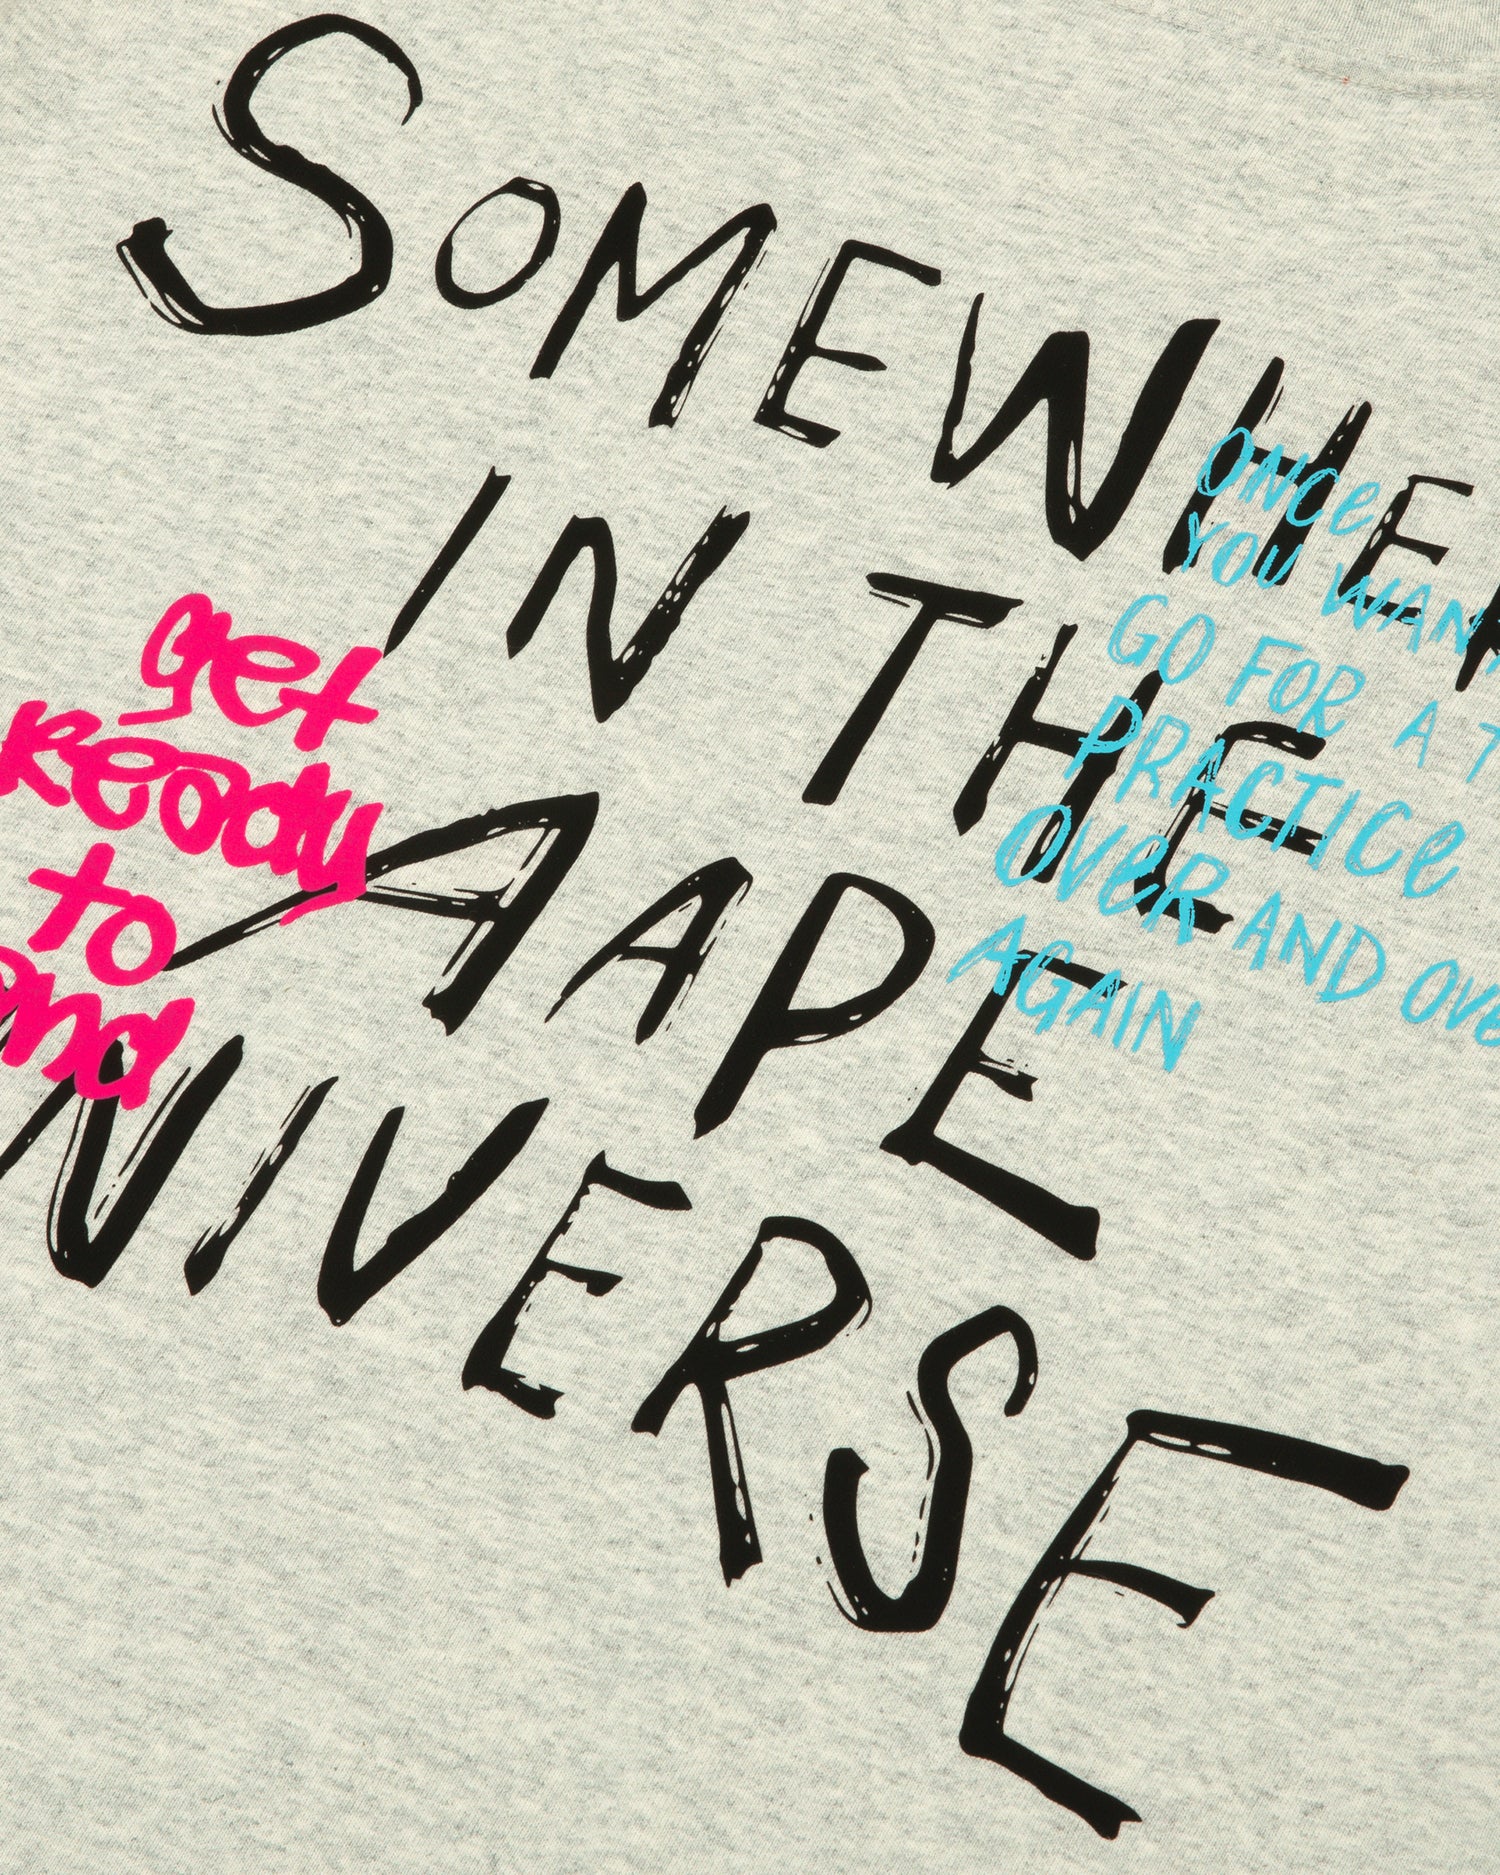 SOMEWHER
IN THE
AAPE
NIVERSE
get
ready
to
and
ONCE
YOU WANT
GO FOR A T
PRACTICE
OVER AND OVE
AGAIN